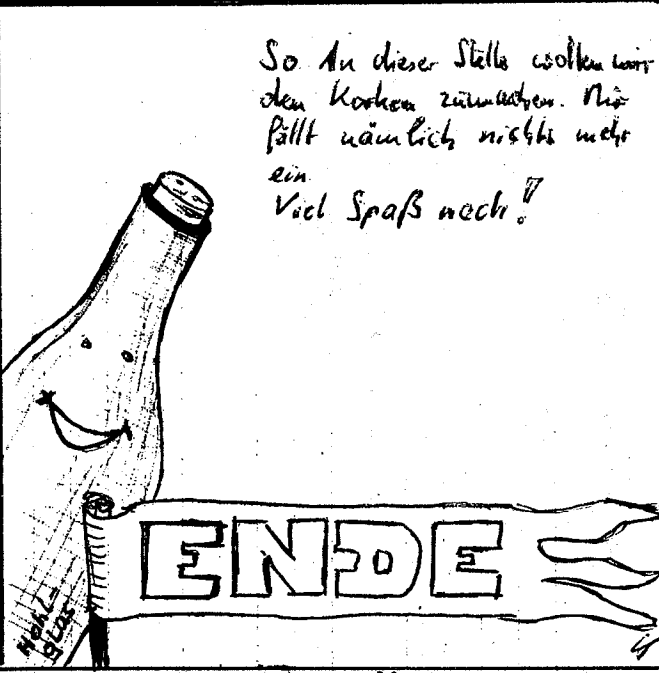 So An dieser Stelle wollen wir
den Korken zumachen. Mir
fällt nämlich nichts mehr
ein.
Viel Spaß noch!
ENDE
Hohl-
glas